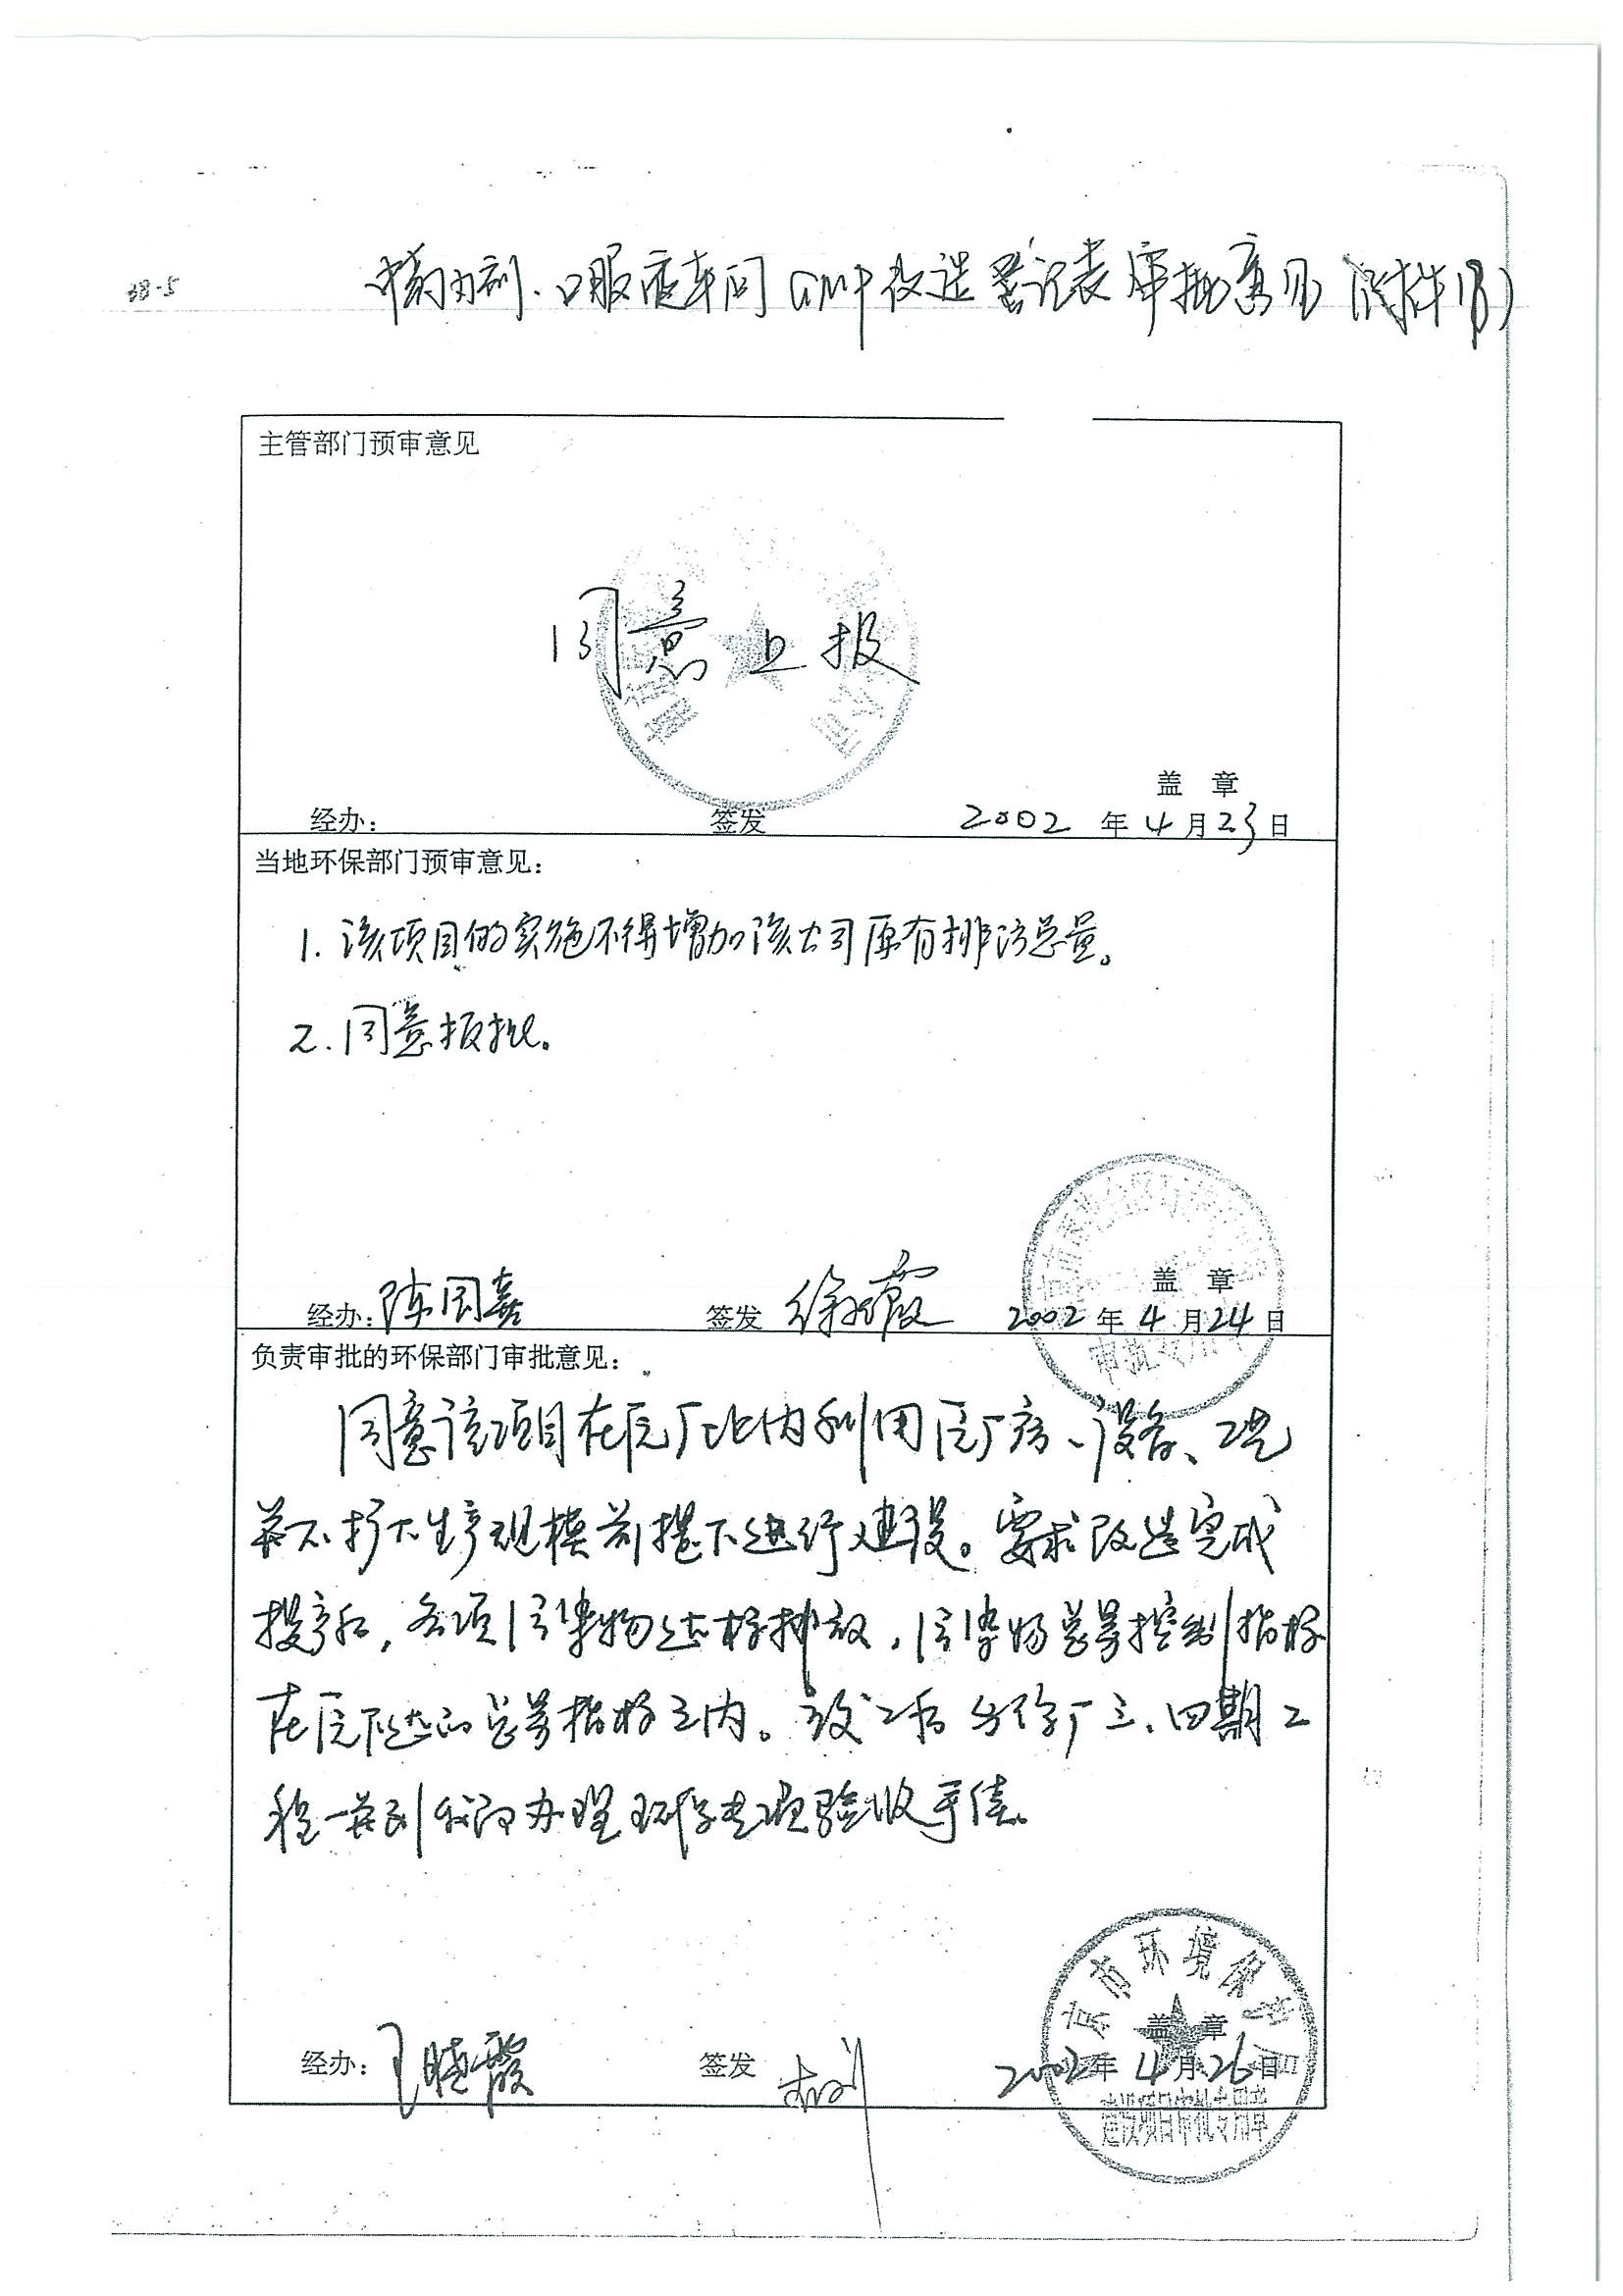 38-5
口服液车间GMP改造登记表审批意见(附件
主管部门预审意见
同意上报
盖 章
经办: 签发 2002 年 4 月 23 日
当地环保部门预审意见:
1. 该项目的实施不得增加该公司原有排污总量。
2. 同意报批。
盖 章
经办: 陈国 签发 徐 霞 2002 年 4 月 24 日
审批专用章
负责审批的环保部门审批意见:
同意该项目在原厂址内利用原厂房、设备、工艺
并不扩大生产规模前提下进行建设。要求改造完成
投产后,各项污染物达标排放,污染物总量控制指标
在原下达的总量指标之内。竣工后 厂三、四期工
程一并到我局办理环保专项验收手续。
京市环境保
盖 章
经办: 王晓霞 签发 2002 年 4 月 26 日
建设项目审批专用章